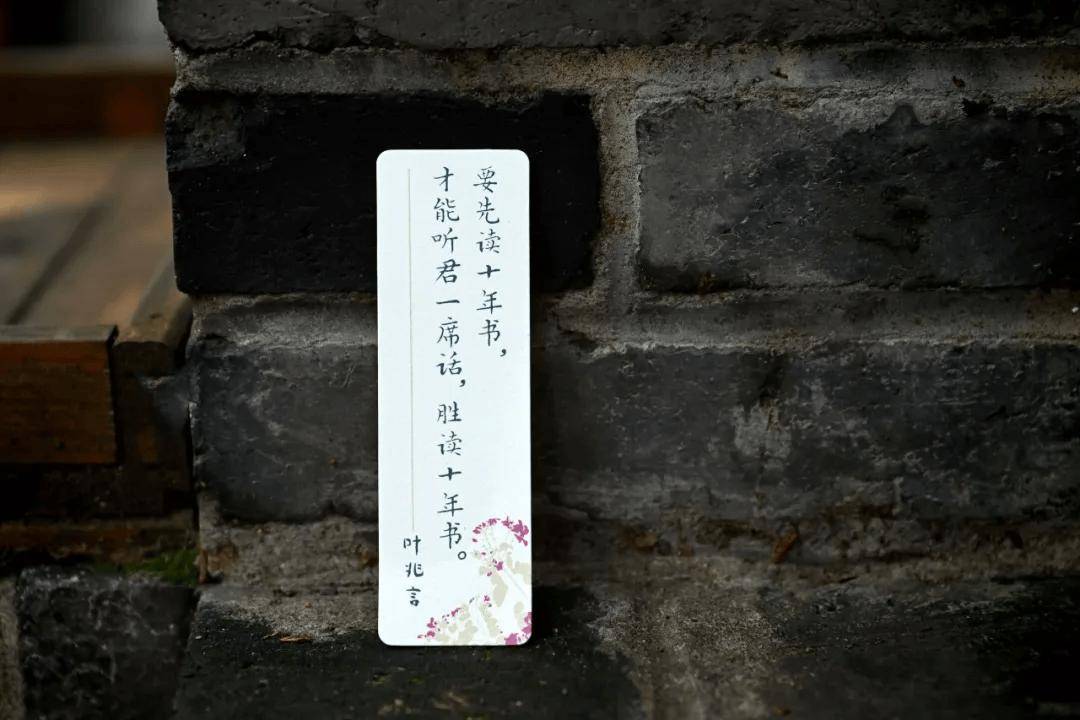 要先读十年书，
才能听君一席话，胜读十年书。
叶兆言